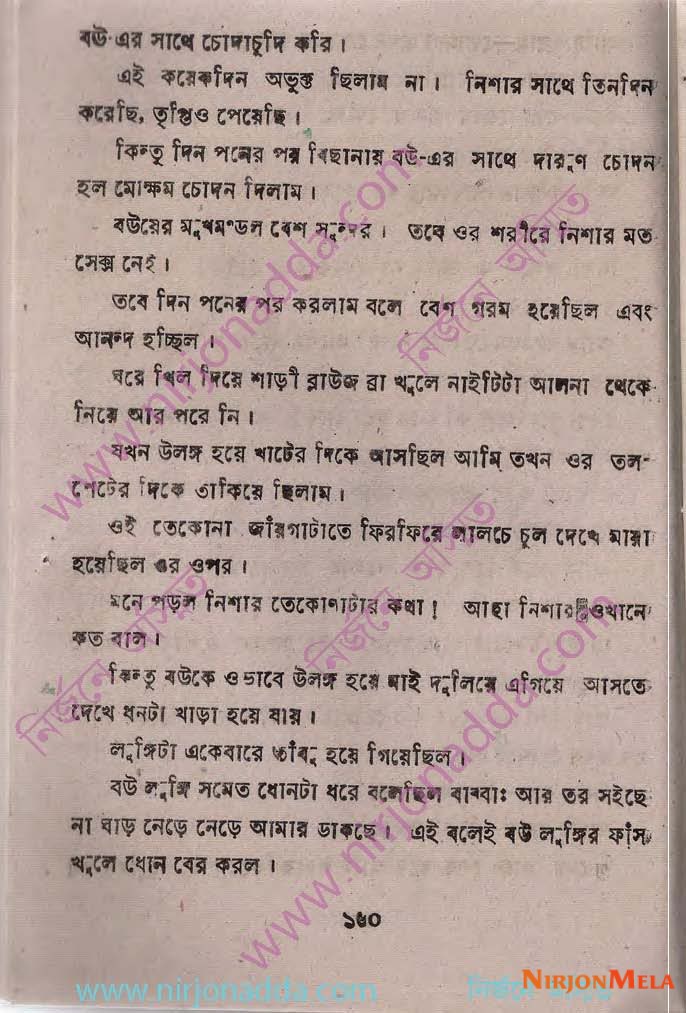 বউ-এর সাথে চোদাচুদি করি।
এই কয়েকদিন অভুক্ত ছিলাম না। নিশার সাথে তিনদিন
করেছি, তৃপ্তিও পেয়েছি।
কিন্তু দিন পনের পর বিছানায় বউ-এর সাথে দারুণ চোদন
হল মোক্ষম চোদন দিলাম।
বউয়ের মুখমণ্ডল বেশ সুন্দর। তবে ওর শরীরে নিশার মত
সেক্স নেই।
তবে দিন পনের পর করলাম বলে বেশ গরম হয়েছিল এবং
আনন্দ হচ্ছিল।
ঘরে খিল দিয়ে শাড়ী ব্লাউজ ব্রা খুলে নাইটিটা আলনা থেকে
নিয়ে আর পরে নি।
যখন উলঙ্গ হয়ে খাটের দিকে আসছিল আমি তখন ওর তল-
পেটের দিকে তাকিয়ে ছিলাম।
ওই তেকোনা জায়গাটাতে ফিরফিরে লালচে চুল দেখে মায়া
হয়েছিল ওর ওপর।
মনে পড়ল নিশার তেকোণাটার কথা! আহা নিশার ওখানে
কত বাল।
কিন্তু বউকে ওভাবে উলঙ্গ হয়ে মাই দুলিয়ে এগিয়ে আসতে
দেখে ধনটা খাড়া হয়ে যায়।
লুঙ্গিটা একেবারে তাঁবু হয়ে গিয়েছিল।
বউ লুঙ্গি সমেত ধোনটা ধরে বলেছিল বাব্বাঃ আর তর সইছে
না ঘাড় নেড়ে নেড়ে আমার ডাকছে। এই বলেই বউ লুঙ্গির ফাঁস
খুলে ধোন বের করল।
১৬০
www.nirjonadda.com
নির্জনে আসুত
www.nirjonadda.com
NIRJONMELA